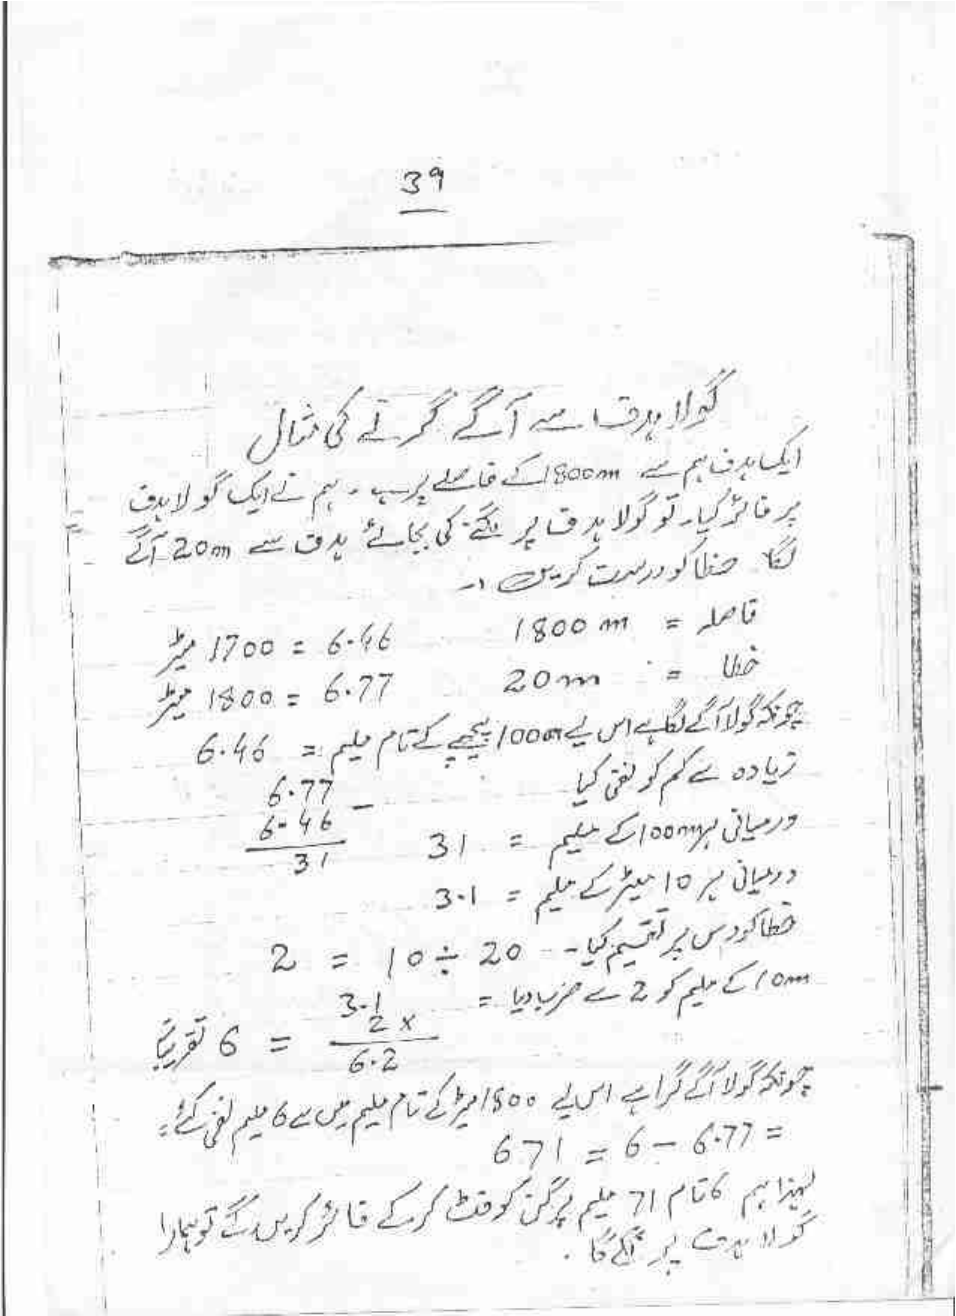 39
گولا ہدف سے آگے گرنے کی مثال
ایک ہدف ہم سے 1800m کے فاصلے پر ہے۔ ہم نے ایک گولا ہدف
پر فائر کیا۔ تو گولا ہدف پر لگنے کی بجائے ہدف سے 20m آگے
لگا۔ خطا کو درست کریں :۔
فاصلہ = 1800m 6.46 = 1700 میٹر
خطا = 20m 6.77 = 1800 میٹر
چونکہ گولا آگے لگا ہے اس لیے 100m پیچھے کے تام ملیم = 6.46
زیادہ سے کم کو نفی کیا 6.77 –
6.46
درمیانی ہر 100m کے ملیم = 31 31
درمیانی ہر 10 میٹر کے ملیم = 3.1
خطا کو دس پر تقسیم کیا۔ 20 ÷ 10 = 2
10m کے ملیم کو 2 سے ضرب دیا = 3.1
2 x
6.2 = 6 تقریباً
چونکہ گولا آگے گرا ہے اس لیے 1800 میٹر کے تام ملیم میں سے 6 ملیم نفی کئے۔
= 6.77 – 6 = 671
لہذا ہم 6 تام 71 ملیم پر گن کو فٹ کر کے فائر کریں گے تو ہمارا
گولا ہدف پر لگے گا۔